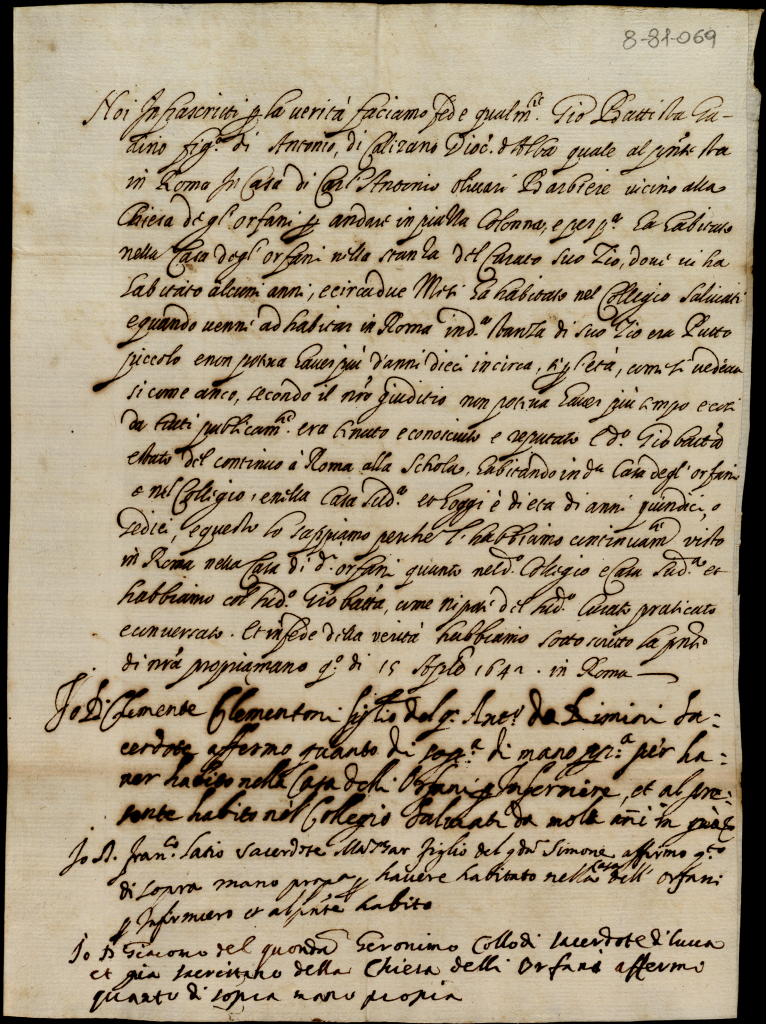 8-81-069
Noi Infrascritti p la verità facciamo fede qualm.te Gio Battista Ga-
dino fig.o di Antonio, di Calizano Dioc. d'Alba quale al pnte sta
in Roma In Casa di Carl'Antonio olivari Barbiere vicino alla
Chiesa degl'orfani p andare in piazza Colonna, e per p.a ha habitato
nella Casa degl'orfani nella stanza del Curato suo Zio, dove vi ha
habitato alcuni anni, e circa due Mesi ha habitato nel Collegio Salviati
e quando venne ad habitar in Roma in d.a stanza di suo Zio era Putto
piccolo e non poteva haver più d'anni dieci incirca, età, come si vedeva
si come anco, secondo il nro giuditio non poteva haver più tempo e così
da tutti publicam.te era tenuto e conosciuto e reputato e d.o Gio batta
e stato del continuo à Roma alla Schola, habitando in d.a Casa degl'orfani
e nel Collegio, e nella Casa sud.a et hoggi è di età di anni quindici, o
sedici, e questo lo sappiamo perche l'habbiamo continuam.te visto
in Roma nella Casa di d.i orfani quanto nel d.o Collegio e Casa sud.a et
habbiamo col sud.o Gio batta, come nipote del sud.o Curato praticato
e conversato. Et in fede della verità habbiamo sottoscritto la pnte
di nra propria mano q.o di 15 Aple 1642. in Roma
Io D. Clemente Clementoni figlio del q. Ant.o da Rimini Sa=
cerdote affermo quanto di sop.a di mano pp.a per ha=
ver habito nella Casa delli Orfani p Infermiere, et al pre=
sente habito nel Collegio Salviati da molti anni in quà
Io D. Fran.co Satio Sacerdote figlio del qdm Simone affermo q.to
di sopra mano propa p havere habitato nella casa dell'orfani
p Infirmiero et al pnte habito
Io D Giacomo del quonda Geronimo Collodi sacerdote di lucca
et gia sacristano della Chiesa delli Orfani affermo
quanto di sopra mano propia